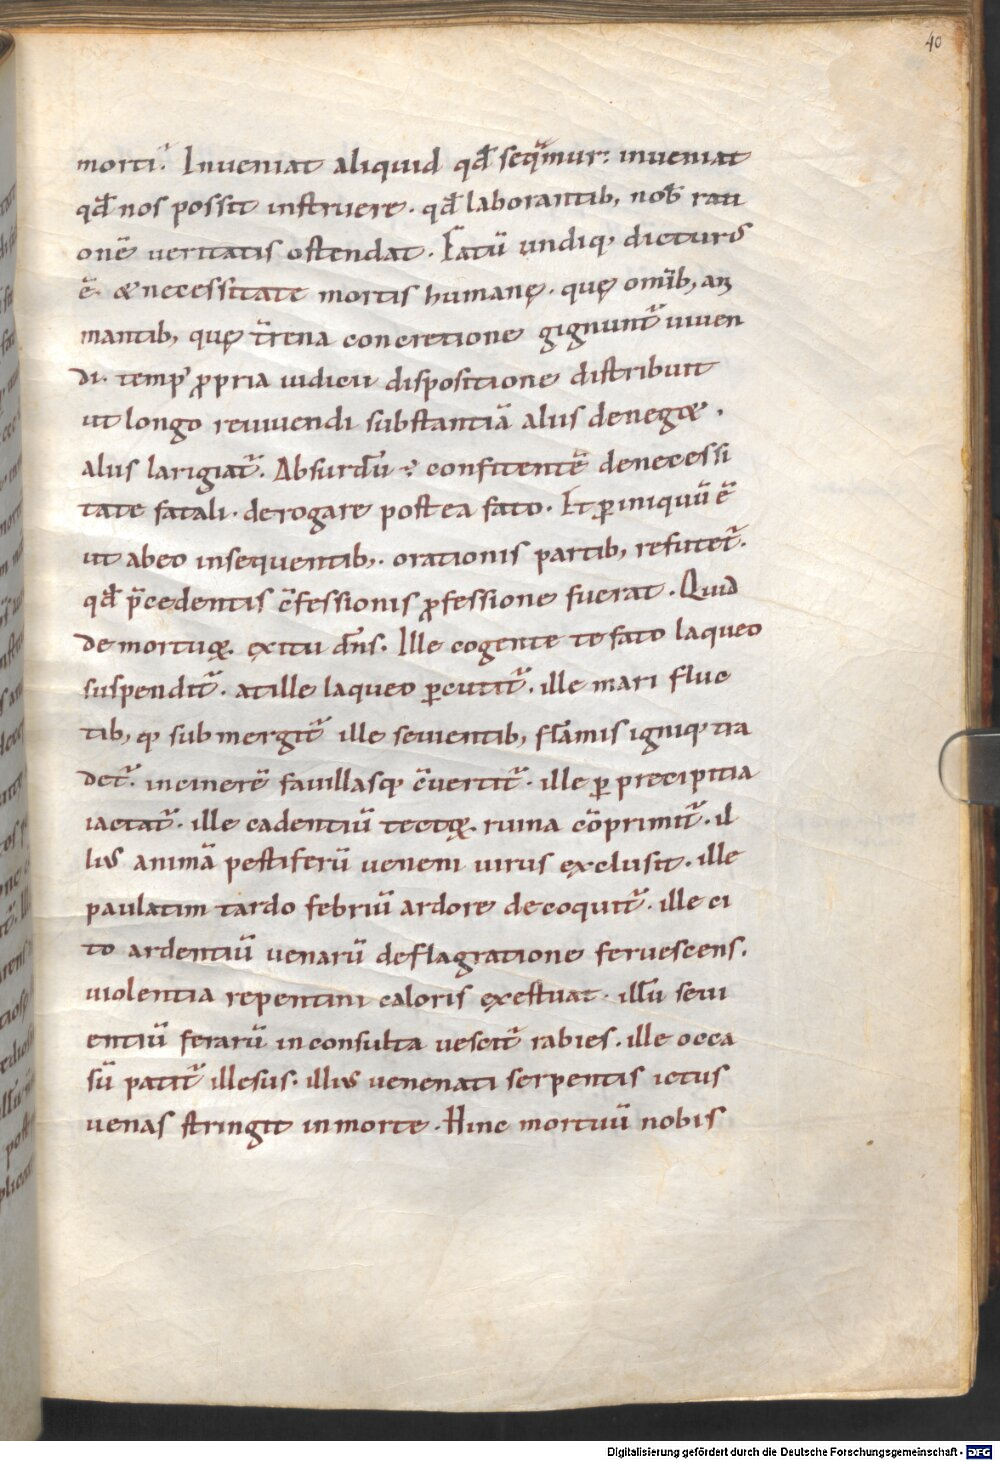 40
morti᷑. Inueniat aliquid qđ seq̃mur: inueniat
qđ nos possit instruere. qđ laborantib; nob̄ rati
onē ueritatis ostendat. Fatū undiq; dicturus
ē. & necessitate mortis humanę. quę om̄ib; ani
mantib; quę t̄rena concretione gignunt᷑ uiuen
di. temp᷒ ꝓpria iudicii dispositione distribuit
ut longo reuiuendi substantiā aliis denegæ.
aliis larigiat᷑. Absurdū ÷ confitentē denecessi
tate fatali. derogare postea fato. Et ꝑiniquū ē
ut abeo insequentib;. orationis partib; refutet᷑.
qđ p̄cedentis c̄fessionis ꝓfessione fuerat. Quid
de mortuoꝝ. exitu dn̄s. Ille cogente te fato laqueo
suspendit᷑. atille laqueo ꝑcutit᷑. ille mari fluc
tib; q; submergit᷑ ille seuientib; flāmis igniq; tra
det᷑. incinerē fauillasq; c̄uertit᷑. ille ꝑ precipitia
iactat᷑. ille cadentiū tectoꝝ. ruina cōprimit᷑. il
lius animā pestiferū ueneni uirus exclusit. ille
paulatim tardo febriū ardore decoquit᷑. ille ci
to ardentiū uenarū deflagratione feruescens.
uiolentia repentini caloris exestuat. illū seui
entiū ferarū inconsulta uescit᷑ rabies. ille occa
sū patit᷑ illesus. illius uenenati serpentis ictus
uenas stringit inmorte. Hinc mortuū nobis
Digitalisierung gefördert durch die Deutsche Forschungsgemeinschaft - DFG